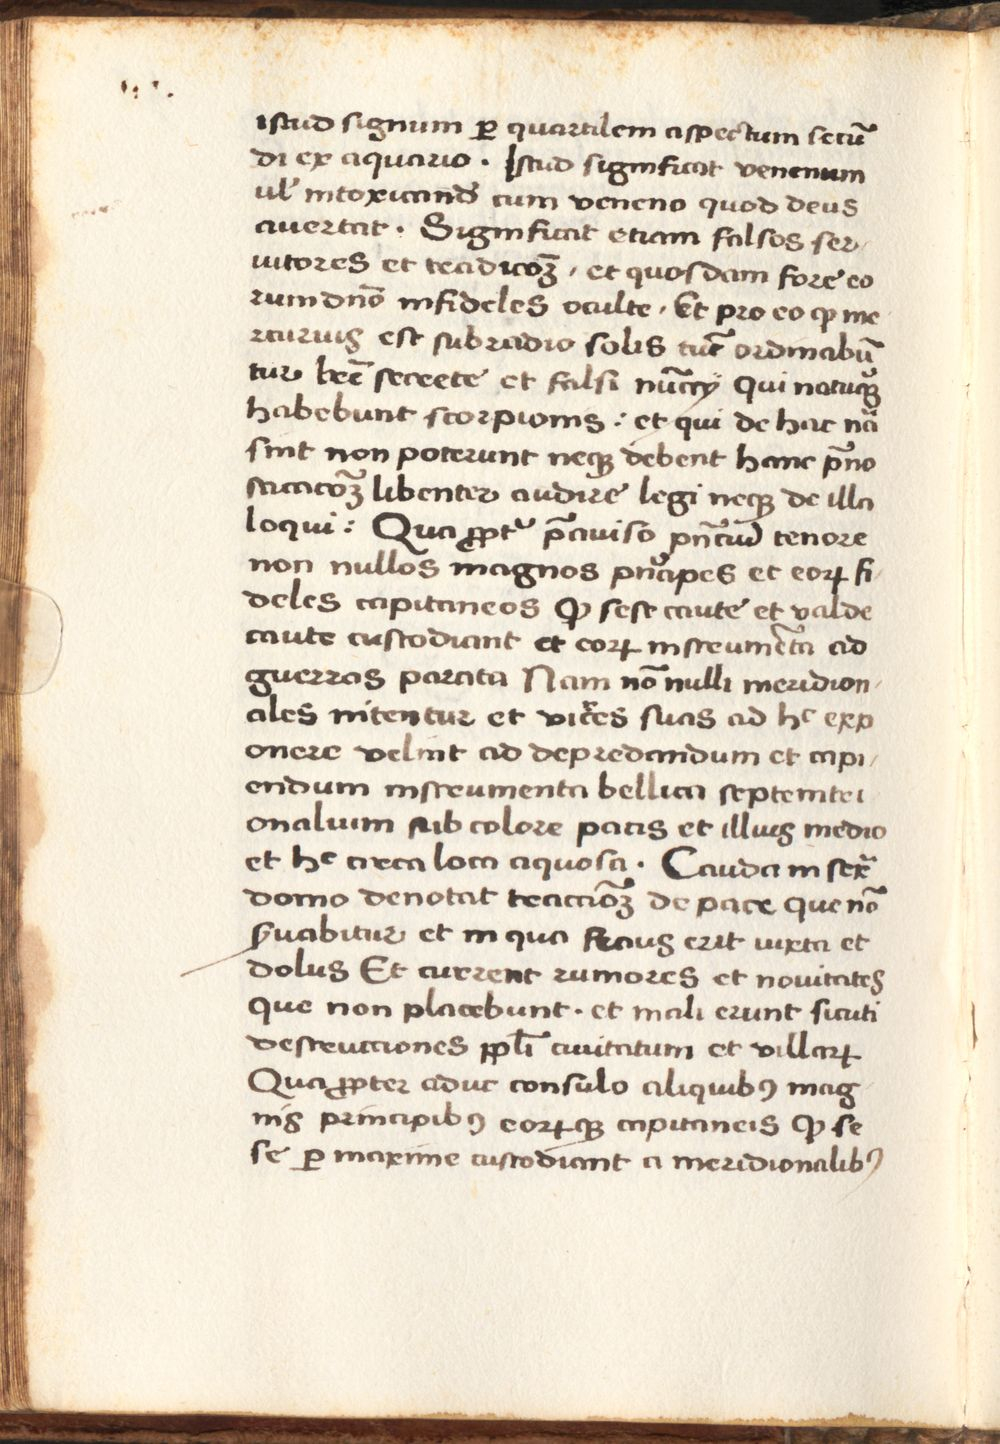 istud signum ꝑ quartilem aspectum secū
di ex aquario . Istud significat venenum
vel̄ intoxicand cum veneno quod deus
avertat . Significat etiam falsos ser/
uitores et tradicōꝫ , et quosdam fore eo
rum dnō infideles oculte , Et pro eo ꝙ me
rcurius est sub radio solis tūc ordinabū
tur brē secrete et falsi nūccij qui
habebunt scorpionis : et qui de hac nā
sint non poterunt neqꝫ debent hanc p̄no
sticacōꝫ libenter audire legi neqꝫ de illa
loqui : Qua ꝓpt̄ p̄auiso tenore
non nullos magnos pn̄cipes et eorꝝ fi/
deles capitaneos ꝙ sese caute et valde
caute custodiant et eorꝝ instrumēta ad
guerras parata Nam nō nulli meridion/
ales nitentur et vir̄es suas ad hᶜ exp
onere velint ad depredandum et capi/
endum instrumenta bellica septemtri
onalium sub colore pacis et illius medio
et hᶜ circa loca aquosa . Cauda in sex̄
domo denotat tractacōꝫ de pace que nō
s̄uabitur et in qua fraus erit iuxta et
dolus Et current rumores et nouitates
que non placebunt . et mali erunt sicuti
destrucciones ppl̄i ciuitatum et villarꝝ
Qua ꝓpter aduc consulo aliquibꝰ mag
nis principibꝰ eorꝝqꝫ capitaneis ꝙ se
se ꝑ maxime custodiant a meridionalibꝰ